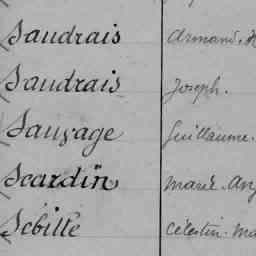 Saudrais Armand.
Saudrais Joseph.
Sauvage Guillaume.
Scardin Marie. Ang
Sébille Célestin. Ma